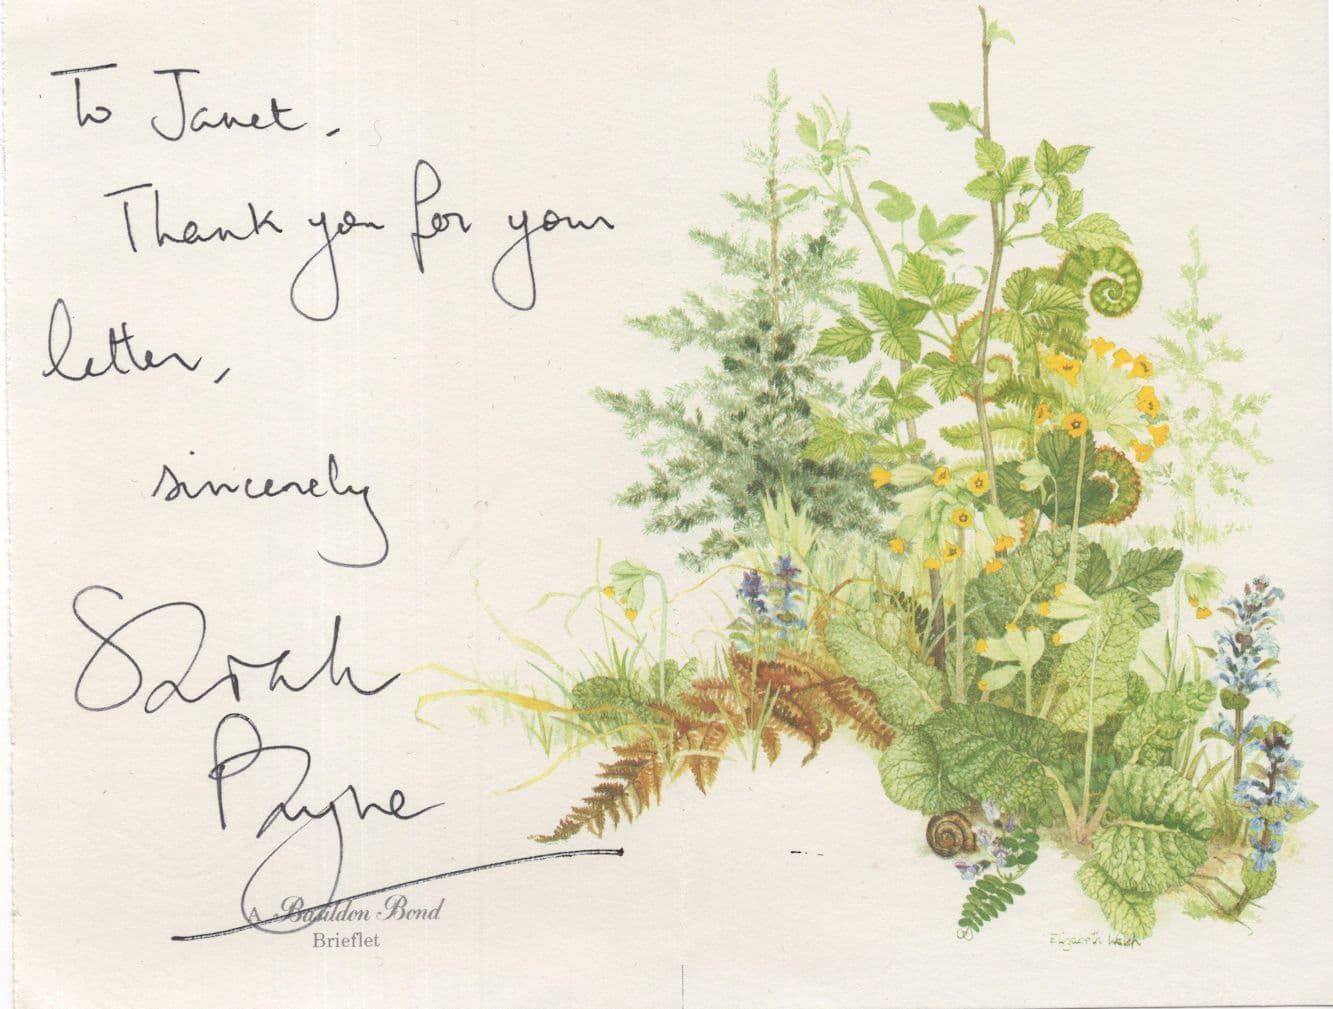 To Janet.
Thank you for your
letter,
sincerely
Sarah
Payne
A Basildon Bond
Brieflet
Elizabeth Walsh